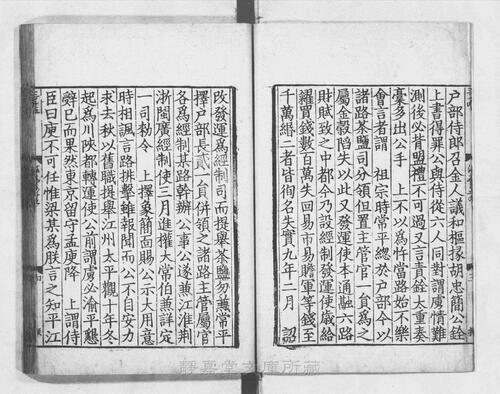 户部侍郎召金人議和樞掾胡忠簡公銓
上書得罪公與侍從六人同對謂虜情難
測後必背盟禮不可過又言貴銓太重奏
藁多出公手　上不以爲忤當路始不樂
會言者謂　祖宗時常平總於户部今以
諸路茶鹽司分領但置主管官一員爲之
屬金榖陷失以此又發運使本通融六路
財賦致之中都今乃設經制發運使歲給
糴買錢數百萬失囬易市易贍軍等錢至
千萬緡二者皆徇名失實九年二月　詔
改發運爲經制司而提舉茶鹽勿兼常平
擇户部長貳一員併領之諸路主管屬官
各爲經制某路幹辦公事公遂兼江淮荆
浙閩廣經制使三月進權太常伯兼詳定
一司勑令　上擇象簡面賜公示大用意
時相諷言路排擊雖報聞而公不自安力
求去秋以舊職提舉江州太平觀十年冬
起爲川陜都轉運使公前謂虜必渝平懇
辭已而果然東京留守孟庾降　上謂侍
臣曰庾不可任惟梁某爲朕言之知平江
静嘉堂文庫所藏